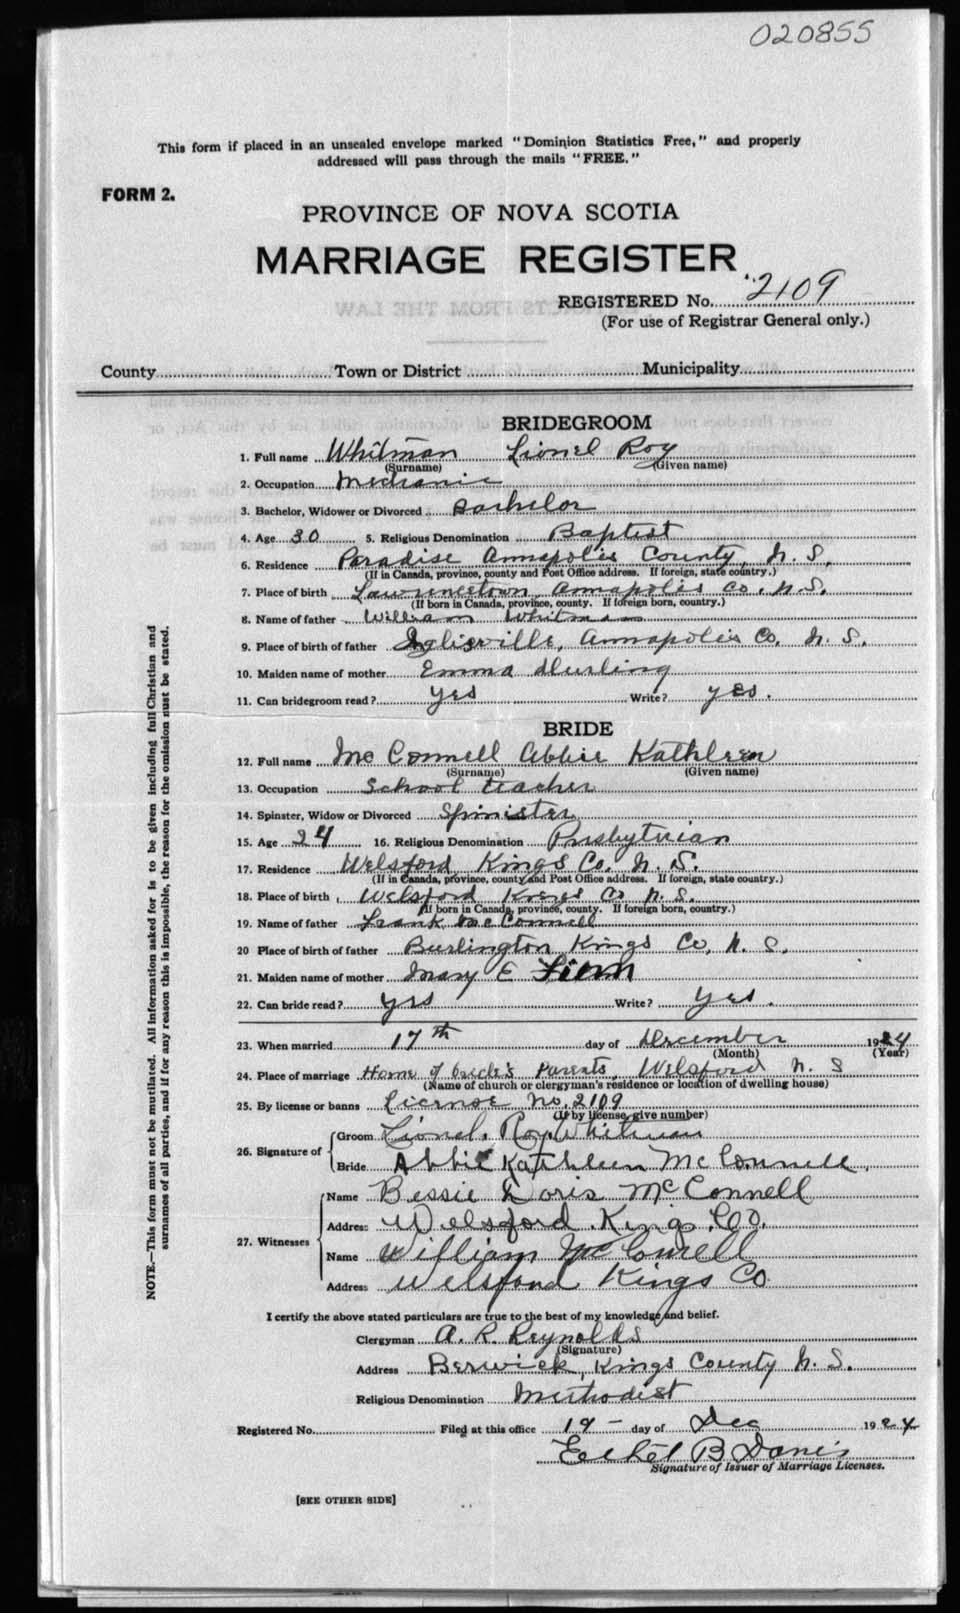 020855
This form if placed in an unsealed envelope marked "Dominion Statistics Free," and properly
addressed will pass through the mails "FREE."
FORM 2.
PROVINCE OF NOVA SCOTIA
MARRIAGE REGISTER
REGISTERED No. 2109
(For use of Registrar General only.)
County Town or District Municipality
BRIDEGROOM
1. Full name Whitman Lionel Roy
(Surname) (Given name)
2. Occupation Mechanic
3. Bachelor, Widower or Divorced Bachelor
4. Age 30 5. Religious Denomination Baptist
6. Residence Paradise Annapolis County, N. S.
(If in Canada, province, county and Post Office address. If foreign, state country.)
7. Place of birth Lawrencetown, Annapolis Co. N.S.
(If born in Canada, province, county. If foreign born, country.)
8. Name of father William Whitman
9. Place of birth of father Inglisville, Annapolis Co, N. S.
10. Maiden name of mother Emma
11. Can bridegroom read? yes Write? yes.
BRIDE
12. Full name Mc Connell Abbie Kathleen
(Surname) (Given name)
13. Occupation School teacher
14. Spinster, Widow or Divorced Spinister
15. Age 24 16. Religious Denomination Presbyterian
17. Residence Welsford Kings Co. N. S.
(If in Canada, province, county and Post Office address. If foreign, state country.)
18. Place of birth Welsford Kings Co N. S.
(If born in Canada, province, county. If foreign born, country.)
19. Name of father Frank McConnell
20 Place of birth of father Burlington Kings Co, N. S.
21. Maiden name of mother Mary E
22. Can bride read? yes Write? yes.
23. When married 17th day of December 1924
(Month) (Year)
24. Place of marriage Home of bride's Parents, Welsford N. S
(Name of church or clergyman's residence or location of dwelling house)
25. By license or banns License No. 2109
(If by license, give number)
26. Signature of Groom Lionel. Roy Whitman
Bride Abbie Kathleen McConnell.
27. Witnesses Name Bessie Doris McConnell
Address Welsford Kings Co.
Name William McConnell
Address Welsford Kings Co
I certify the above stated particulars are true to the best of my knowledge and belief.
Clergyman A. R. Reynolds
(Signature)
Address Berwick, Kings County N. S.
Religious Denomination Methodist
Registered No. Filed at this office 19- day of Dec 1924
Ethel B
Signature of Issuer of Marriage Licenses.
[SEE OTHER SIDE]
NOTE.—This form must not be mutilated. All information asked for is to be given including full Christian and
surnames of all parties, and if for any reason this is impossible, the reason for the omission must be stated.